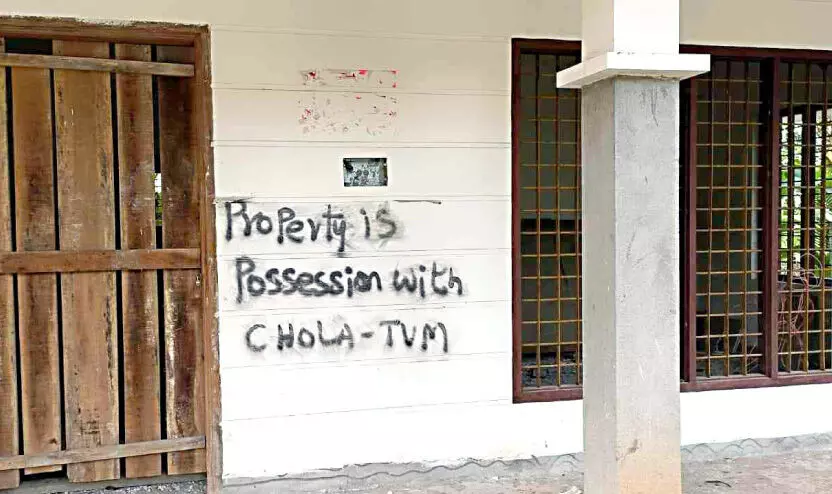 Property is
Possession with
CHOLA-TVM